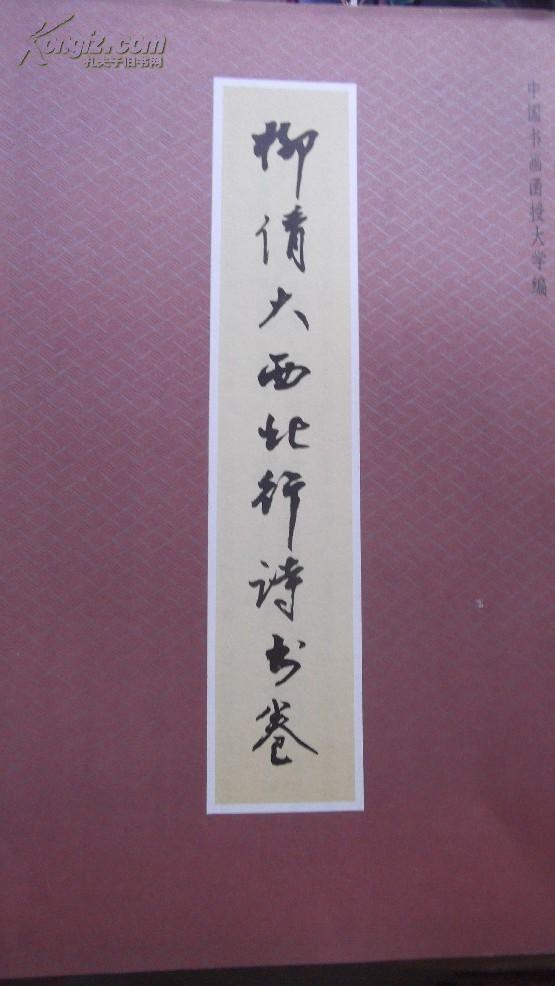 Kongfz.com
孔夫子旧书网
中国书画函授大学编
柳倩大西北行诗书卷